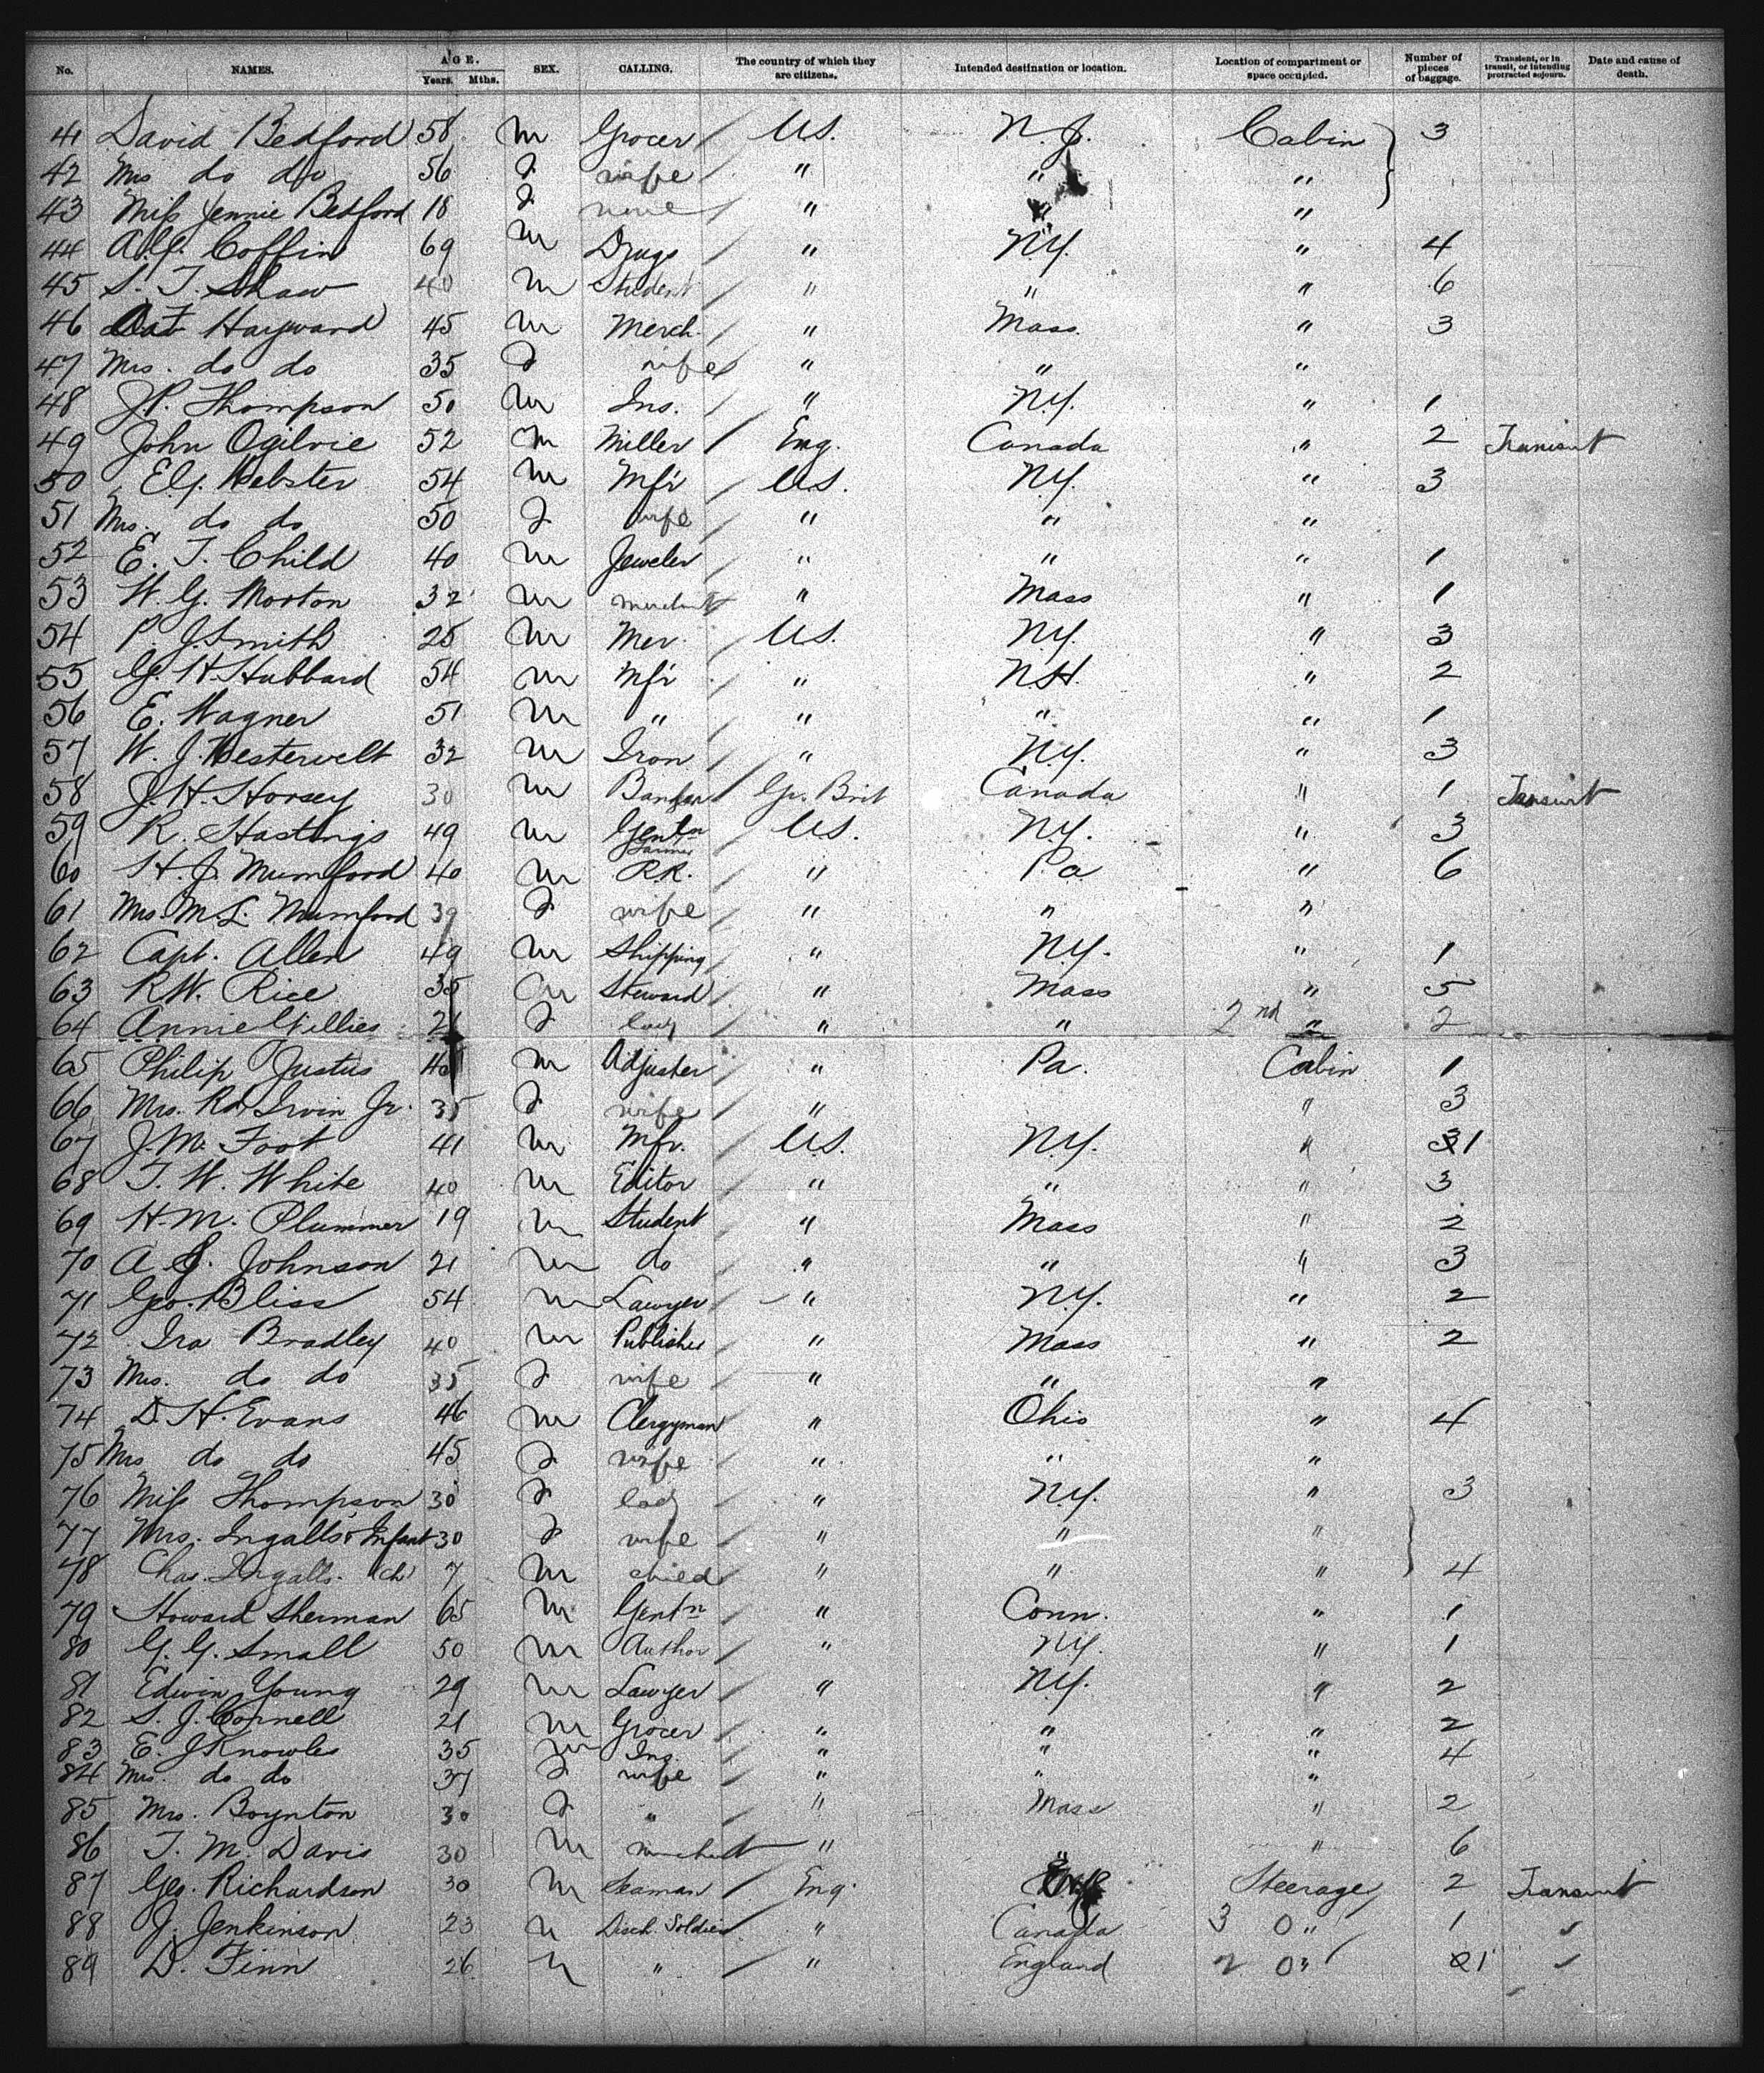 No. NAMES. AGE. Years. Mths. SEX. CALLING. The country of which they are citizens. Intended destination or location. Location of compartment or space occupied. Number of pieces of baggage. Transient, or in transit, or intending protracted sojourn. Date and cause of death.
41 David Bedford 58 m Grocer / U.S. N.J. Cabin 3
42 Mrs do do 56 f wife / " " "
43 Miss Jennie Bedford 18 f none / " " "
44 Coffin 69 m Drugs / " N.Y. " 4
45 S. T. Shaw 40 m Student / " " " 6
46 Hayward 45 m Merch. / " Mass. " 3
47 Mrs. do do 35 f wife / " " "
48 J.P. Thompson 50 m Ins. / " N.Y. " 1
49 John Ogilvie 52 m Miller / Eng. Canada " 2 Transit
50 E.G. Webster 54 m Mfr / U.S. N.Y. " 3
51 Mrs. do do 50 f wife / " " "
52 E. T. Child 40 m Jeweler / " " " 1
53 W. G. Morton 32 m merchant / " Mass " 1
54 P. J. Smith 25 m Mer. / U.S. N.Y. " 3
55 G. H. Hubbard 54 m Mfr / " N.H. " 2
56 E. Wagner 51 m " / " " " 1
57 W. J. Westervelt 32 m Iron / " N.Y. " 3
58 J. H. Horsey 30 m Banker / Gr. Brit Canada " 1 Transit
59 R. Hastings 49 m Gentn Farmer / U.S. N.Y. " 3
60 H. J. Mumford 40 m R.R. / " Pa " 6
61 Mrs. M. L. Mumford 39 f wife / " " "
62 Capt. Allen 49 m Shipping / " N.Y. " 1
63 R.W. Rice 35 m Steward / " Mass " 5
64 Annie Gillies f lady / " " 2nd " 2
65 Philip Justus m Adjuster / " Pa. Cabin 1
66 Mrs. Irvin Jr. 35 f wife / " " 3
67 J. M. Foot 41 m Mfr. / U.S. N.Y. " 1
68 T. W. White 40 m Editor / " " " 3
69 H. M. Plummer 19 m Student / " Mass " 2
70 A Johnson 21 m do / " " " 3
71 Geo. Bliss 54 m Lawyer / " N.Y. " 2
72 Ira Bradley 40 m Publisher / " Mass " 2
73 Mrs. do do 35 f wife / " " "
74 D. H. Evans 46 m Clergyman / " Ohio " 4
75 Mrs do do 45 f wife / " " "
76 Miss Thompson 30 f lady / " N.Y. " 3
77 Mrs. Ingalls & Infant 30 f wife / " " "
78 Chas. Ingalls. (ch) 7 m child / " " " 4
79 Howard Sherman 65 m Gentn / " Conn. " 1
80 G. G. Small 50 m Author / " N.Y. " 1
81 Edwin Young 29 m Lawyer / " N.Y. " 2
82 S. J. Cornell 21 m Grocer / " " " 2
83 E. J Knowles 35 m Ins. / " " " 4
84 Mrs. do do 37 f wife / " " "
85 Mrs. Boynton 30 f " / " Mass " 2
86 T. M. Davis 30 m merchant " " " 6
87 Geo. Richardson 30 m Seaman / Eng. Steerage 2 Transit
88 J. Jenkinson 23 m Disch. Soldier / " Canada 3 0 " 1 "
89 D. Finn 26 m " / " England 2 0 " 1 "